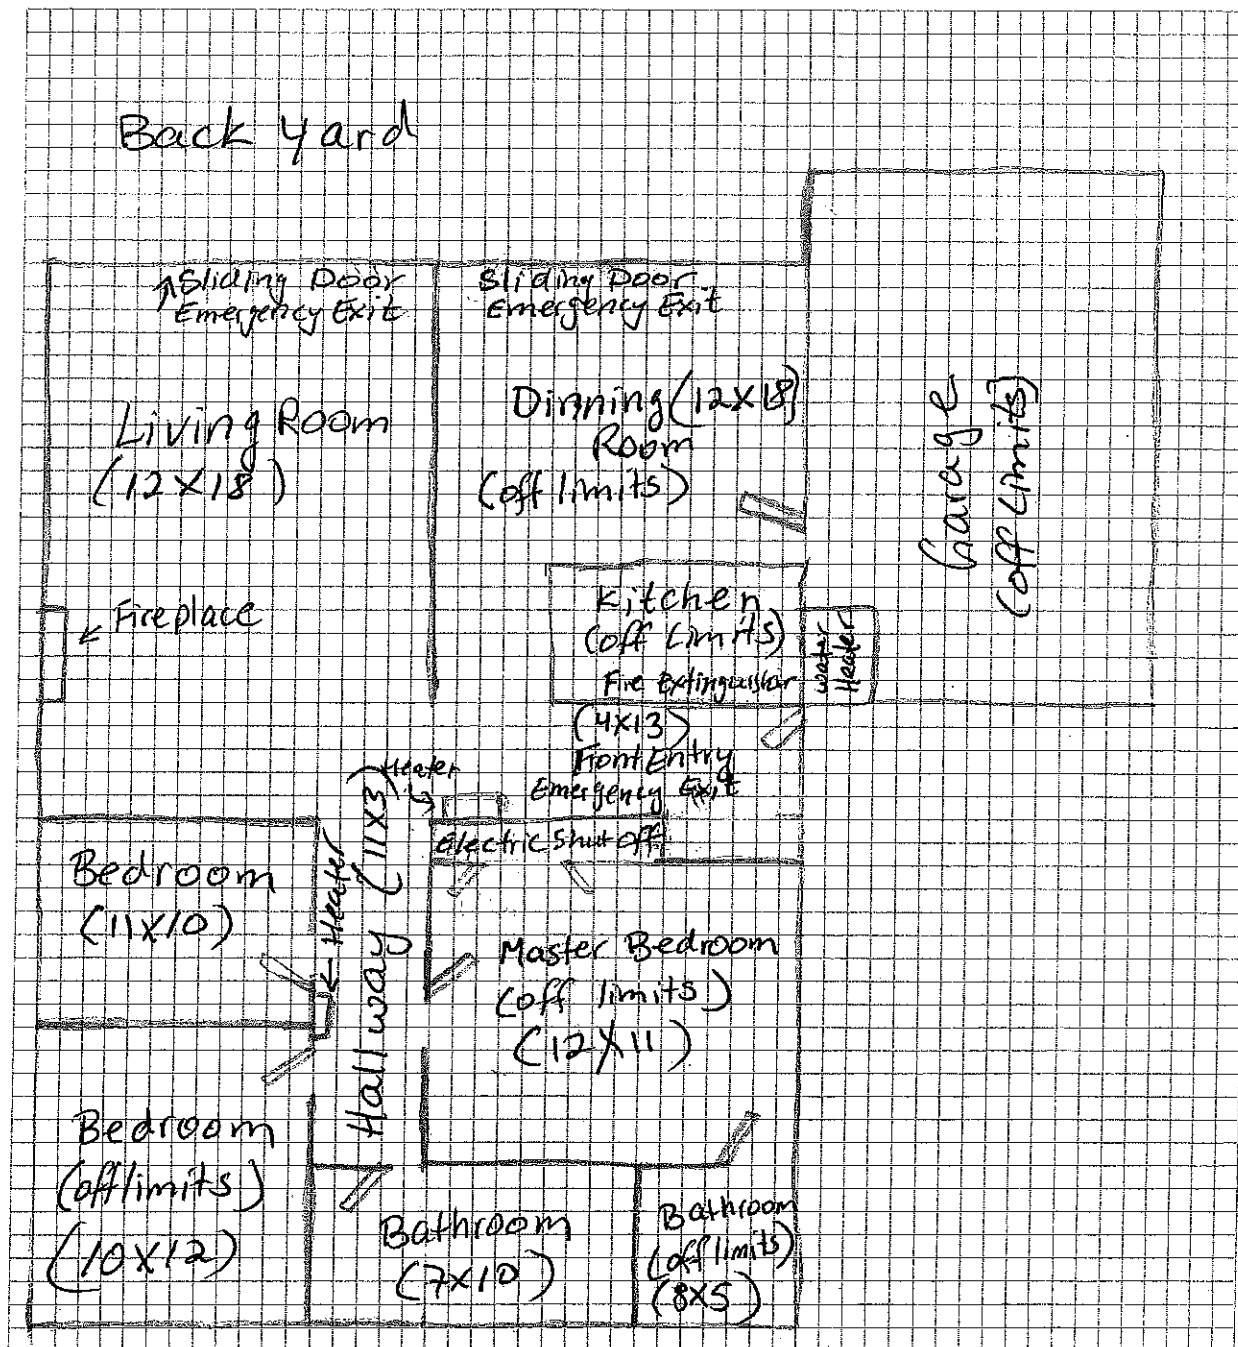 Back Yard
Sliding Door
Emergency Exit
Sliding Door
Emergency Exit
Living Room
(12X18)
Dinning (12X18)
Room
(off limits)
Garage
(off Limits)
Fireplace
Kitchen
(off Limits)
Fire Extinguisher
Water
Heater
(4X13)
Front Entry
Emergency Exit
Heater
Electric Shut off
Bedroom
(11X10)
Heater
Hallway (11X3)
Master Bedroom
(off limits)
(12X11)
Bedroom
(off limits)
(10X12)
Bathroom
(7X10)
Bathroom
(off limits)
(8X5)